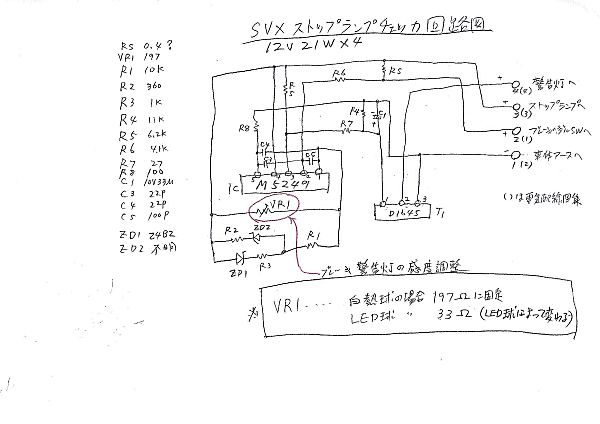 SVX ストップランプチェッカ回路図
12V 21W×4
RS 0.4?
VR1 197
R1 10K
R2 360
R3 1K
R4 11K
R5 6.2K
R6 4.1K
R7 27
R8 100
C1 10V33μ
C3 22P
C4 22P
C5 100P
ZD1 24BZ
ZD2 不明
R6
RS
R5
R4
C1
R7
R8
C4
C5
5 4 3 2 1
IC M5249
VR1
R2 ZD2
ZD1 R3
R1
1 2 3
T1
+ 4(4) 警告灯へ
+ 3(3) ストップランプへ
+ 2(1) ブレーキペダルSWへ
- 1(2) 車体アースへ
( )は電気配線図集
ブレーキ警告灯の感度調整
※ VR1 ‥‥ 白熱球の場合 197Ωに固定
LED球 〃 33Ω (LED球によって変わる)